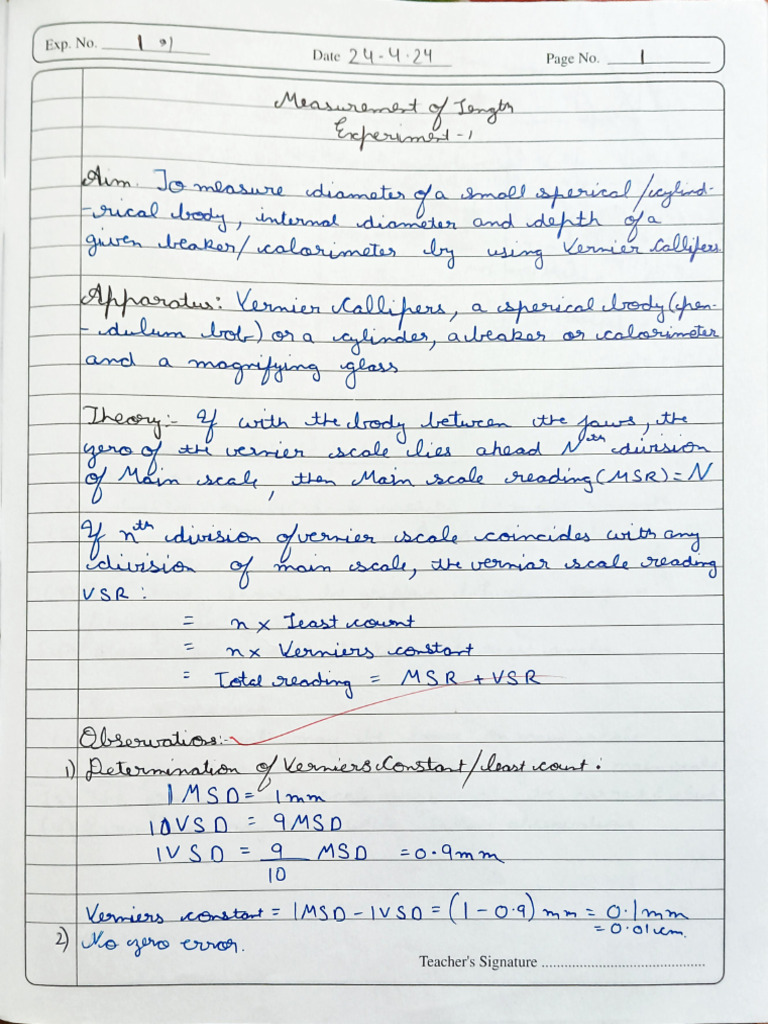 Exp. No. 1 a)
Date 24-4-24
Page No. 1
Measurement of Length
Experiment-1
Aim. To measure diameter of a small sperical/cylind-
-rical body, internal diameter and depth of a
given beaker/calorimeter by using Vernier Callifers
Apparatus: Vernier Callipers, a sperical body (pen-
-dulum bob) or a cylinder, a beaker or calorimeter
and a magnifying glass
Theory:- If with the body between the jaws, the
zero of the vernier scale lies ahead Nth division
of Main scale, then Main scale reading (MSR) = N
If nth division of vernier scale coincides with any
division of main scale, the verniar scale reading
VSR :
= n x Least count
= n x Verniers constant
= Total reading = MSR + VSR
Observations:-
1) Determination of Verniers Constant/least count :
1 MSD = 1mm
10VSD = 9MSD
1VSD = 9/10 MSD = 0.9mm
Verniers constant = 1MSD-1VSD = (1-0.9) mm = 0.1mm
= 0.01cm.
2) No zero error.
Teacher's Signature